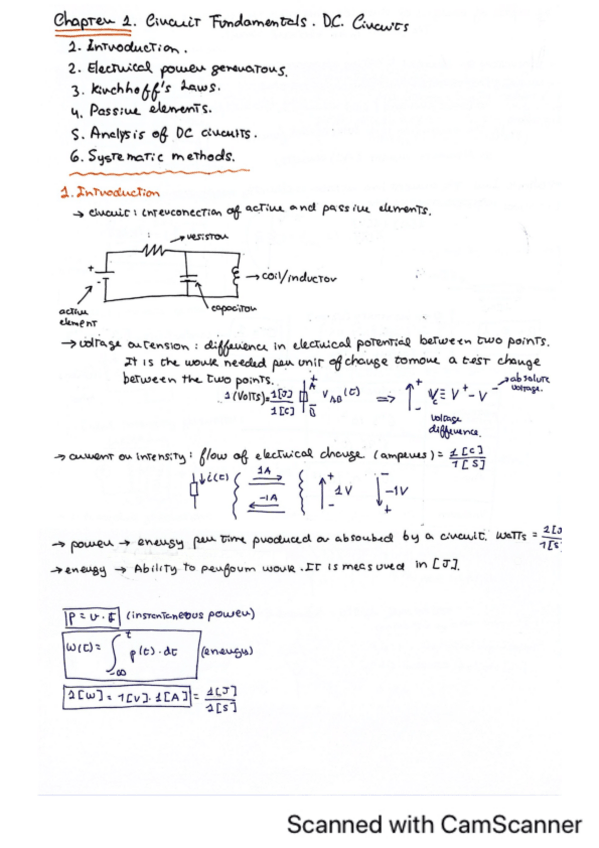 Chapter 1. Circuit Fundamentals. D.C. Circuits
1. Introduction.
2. Electrical power generators.
3. Kirchhoff's Laws.
4. Passive elements.
5. Analysis of DC circuits.
6. Systematic methods.
1. Introduction
→ circuit: interconection of active and passive elements.
→ resistor
+
-
→ coil/inductor
active
element
capacitor
→ voltage or tension: difference in electrical potential between two points.
It is the work needed per unit of charge to move a test charge
between the two points.
1 (VOLTS) = 1[J] / 1[C]
+ A
- B
V_AB(t) ⇒ + - V ≡ V⁺ - V⁻
absolute
voltage.
voltage
difference.
→ current or intensity: flow of electrical charge (amperes) = 1[C] / 1[S]
i(t)
1A
-1A
+ 1V -
- -1V +
→ power → energy per time produced or absorbed by a circuit. Watts = 1[J / 1[S
→ energy → Ability to perform work. It is measured in [J].
(instantaneous power)
w(t) = ∫_{-∞}^{t} p(t)·dt (energy)
1[W] = 1[V]·1[A] = 1[J] / 1[S]
Scanned with CamScanner